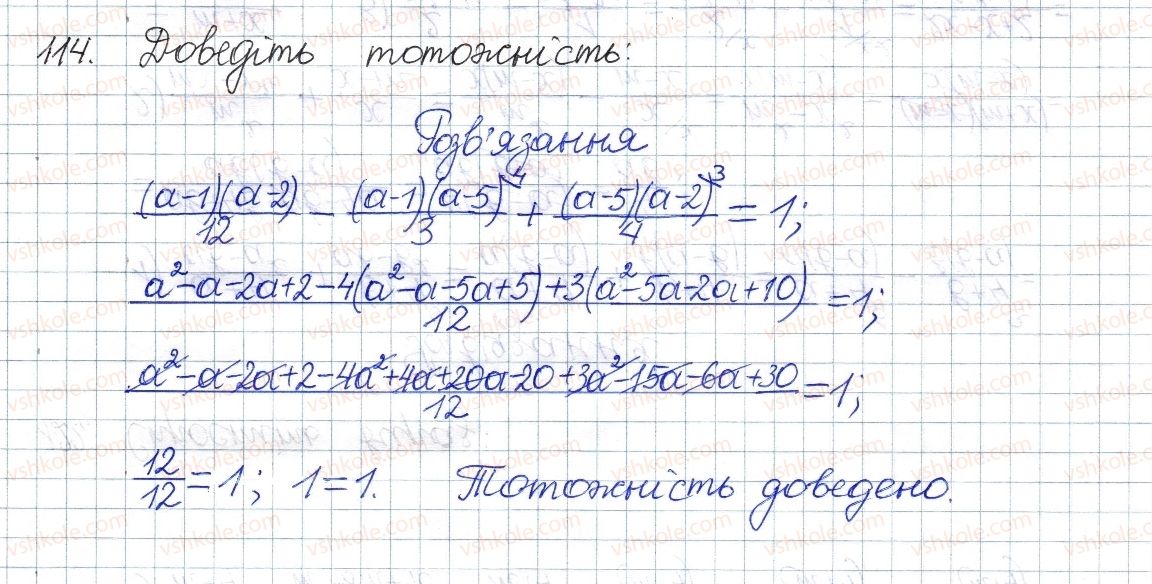 114. Доведіть тотожність:
Розв'язання
(a-1)(a-2)/12 - (a-1)(a-5)^4/3 + (a-5)(a-2)^3/4 = 1;
a²-a-2a+2-4(a²-a-5a+5)+3(a²-5a-2a+10)/12 = 1;
a²-a-2a+2-4a²+4a+20a-20+3a²-15a-6a+30/12 = 1;
12/12 = 1; 1=1. Тотожність доведено.